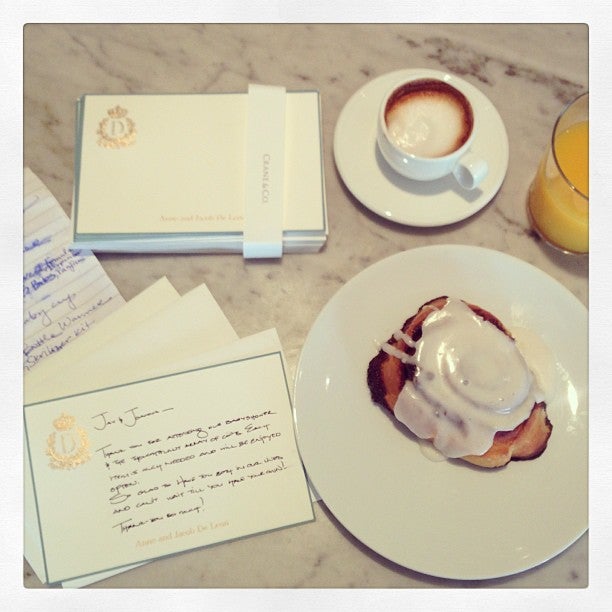 D
CRANE & CO.
Anne and Jacob De Leon
baby cup
Bottle Warmer
D
Jay & J
Thank you for attending our baby shower
& the thoughtful array of gifts. Each
item is truly needed and will be enjoyed
often.
So glad to have you both in our lives
and can't wait till you have your own!
Thank you so much!
Anne and Jacob De Leon